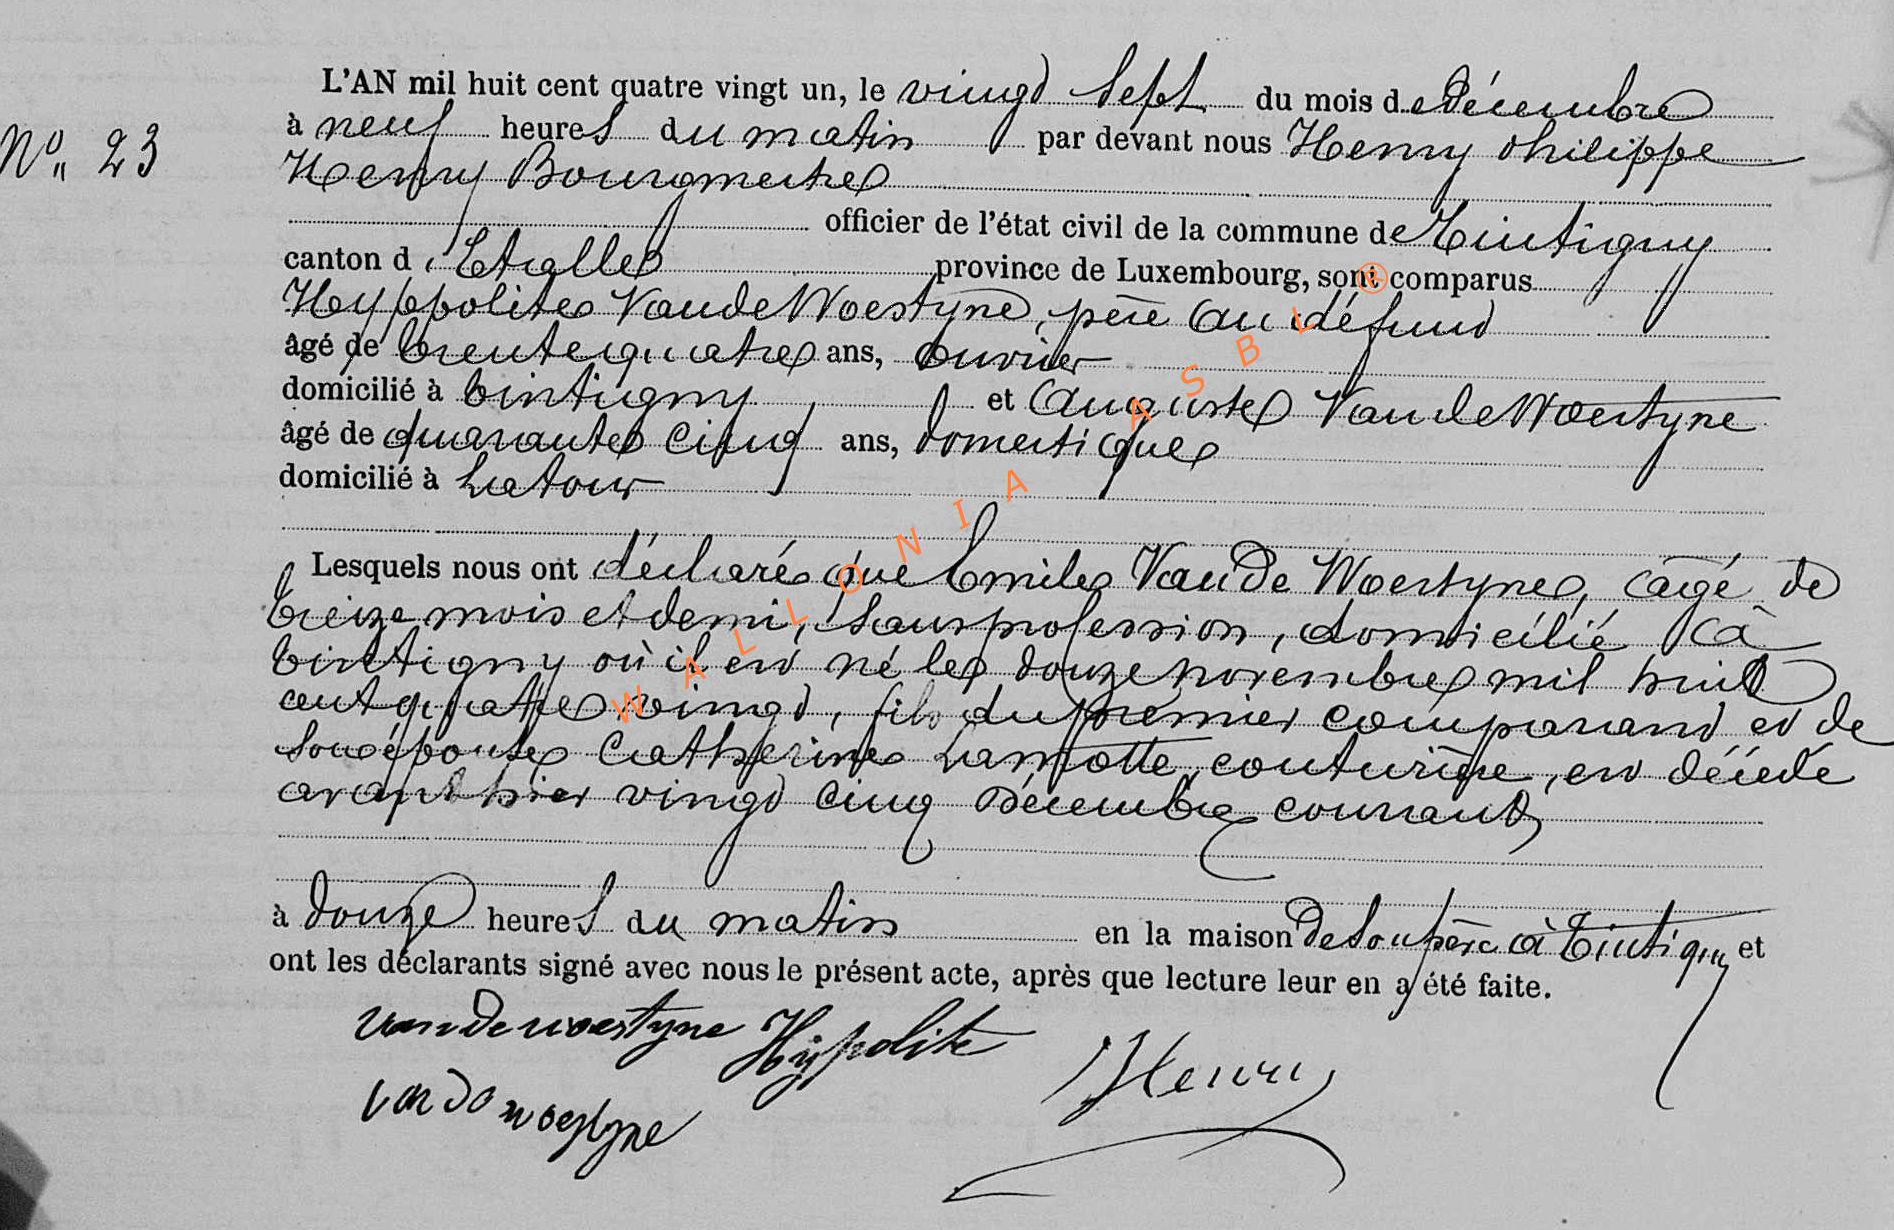 L'AN mil huit cent quatre vingt un, le vingt sept du mois de décembre
No 23
à neuf heures du matin par devant nous Henry Philippe
Henry Bourgmestre
officier de l'état civil de la commune de Tintigny
canton d'Etalle province de Luxembourg, sont comparus
Hyppolite VandeWoestyne, père au défunt
âgé de trente quatre ans, ouvrier
domicilié à tintigny et Auguste VandeWoestyne
âgé de quarante cinq ans, domestique
domicilié à Latour
Lesquels nous ont déclaré que Emile VandeWoestyne, âgé de
treize mois et demi, sans profession, domicilié à
tintigny où il est né le douze novembre mil huit
cent quatre vingt, fils du premier comparant et de
son épouse Catherine Lamotte, couturière, est décédé
avant hier vingt cinq Décembre courant,
à douze heures du matin en la maison de son père à Tintigny et
ont les déclarants signé avec nous le présent acte, après que lecture leur en a été faite.
vandewoestyne Hypolite
Henry
vandewoestyne
WALLONIA ASBL ®